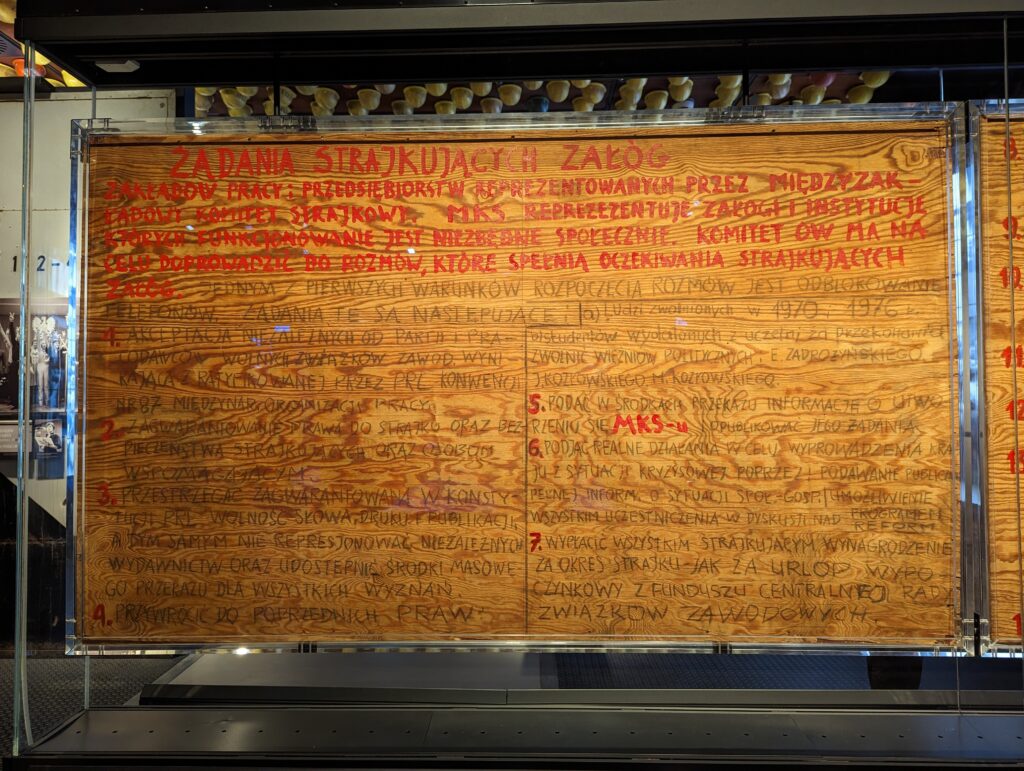 ŻĄDANIA STRAJKUJĄCYCH ZAŁÓG
ZAKŁADÓW PRACY I PRZEDSIĘBIORSTW REPREZENTOWANYCH PRZEZ MIĘDZYZAK-
ŁADOWY KOMITET STRAJKOWY. MKS REPREZEZENTUJE ZAŁOGI I INSTYTUCJE
KTÓRYCH FUNKCJONOWANIE JEST NIEZBĘDNE SPOŁECZNIE KOMITET ÓW MA NA
CELU DOPROWADZIĆ DO ROZMÓW, KTÓRE SPEŁNIĄ OCZEKIWANIA STRAJKUJĄCYCH
ZAŁÓG. JEDNYM Z PIERWSZYCH WARUNKÓW ROZPOCZĘCIA ROZMÓW JEST ODBLOKOWANIE
TELEFONÓW. ŻĄDANIA TE SĄ NASTĘPUJĄCE:
1. AKCEPTACJA NIEZALEŻNYCH OD PARTII I PRA-
CODAWCÓW WOLNYCH ZWIĄZKÓW ZAWOD. WYNI
KAJĄCA Z RATYFIKOWANEJ PRZEZ PRL KONWENCJI
NR 87 MIĘDZYNAR. ORGANIZACJI PRACY.
2. ZAGWARANTOWANIE PRAWA DO STRAJKU ORAZ BEZ-
PIECZEŃSTWA STRAJKUJĄCYCH ORAZ OSOBOM
WSPOMAGAJĄCYM
3. PRZESTRZEGAĆ ZAGWARANTOWANĄ W KONSTY-
TUCJI PRL WOLNOŚĆ SŁOWA, DRUKU I PUBLIKACJI,
A TYM SAMYM NIE REPRESJONOWAĆ NIEZALEŻNYCH
WYDAWNICTW ORAZ UDOSTĘPNIĆ ŚRODKI MASOWE
GO PRZEKAZU DLA WSZYSTKICH WYZNAŃ
4. PRZYWRÓCIĆ DO POPRZEDNICH PRAW:
a) Ludzi zwolnionych w 1970 1976 r.
b) studentów wydalonych z uczelni za przekonania
ZWOLNIĆ WIĘŹNIÓW POLITYCZNYCH: E. ZADROŻYŃSKIEGO,
J. KOZŁOWSKIEGO, M. KOZŁOWSKIEGO.
5. PODAĆ W ŚRODKACH PRZEKAZU INFORMACJĘ O UTWO
RZENIU SIĘ MKS-u I OPUBLIKOWAĆ JEGO ŻĄDANIA.
6. PODJĄĆ REALNE DZIAŁANIA W CELU WYPROWADZENIA KRA
JU Z SYTUACJI KRYZYSOWEJ POPRZEZ: PODAWANIE PUBLICZ.
PEŁNEJ INFORM. O SYTUACJI SPOŁ.-GOSP. UMOŻLIWIENIE
WSZYSTKIM UCZESTNICZENIA W DYSKUSJI NAD PROGRAMEM
REFORM
7. WYPŁACIĆ WSZYSTKIM STRAJKUJĄCYM WYNAGRODZENIE
ZA OKRES STRAJKU JAK ZA URLOP WYPO
CZYNKOWY Z FUNDUSZU CENTRALNEJ RADY
ZWIĄZKÓW ZAWODOWYCH.